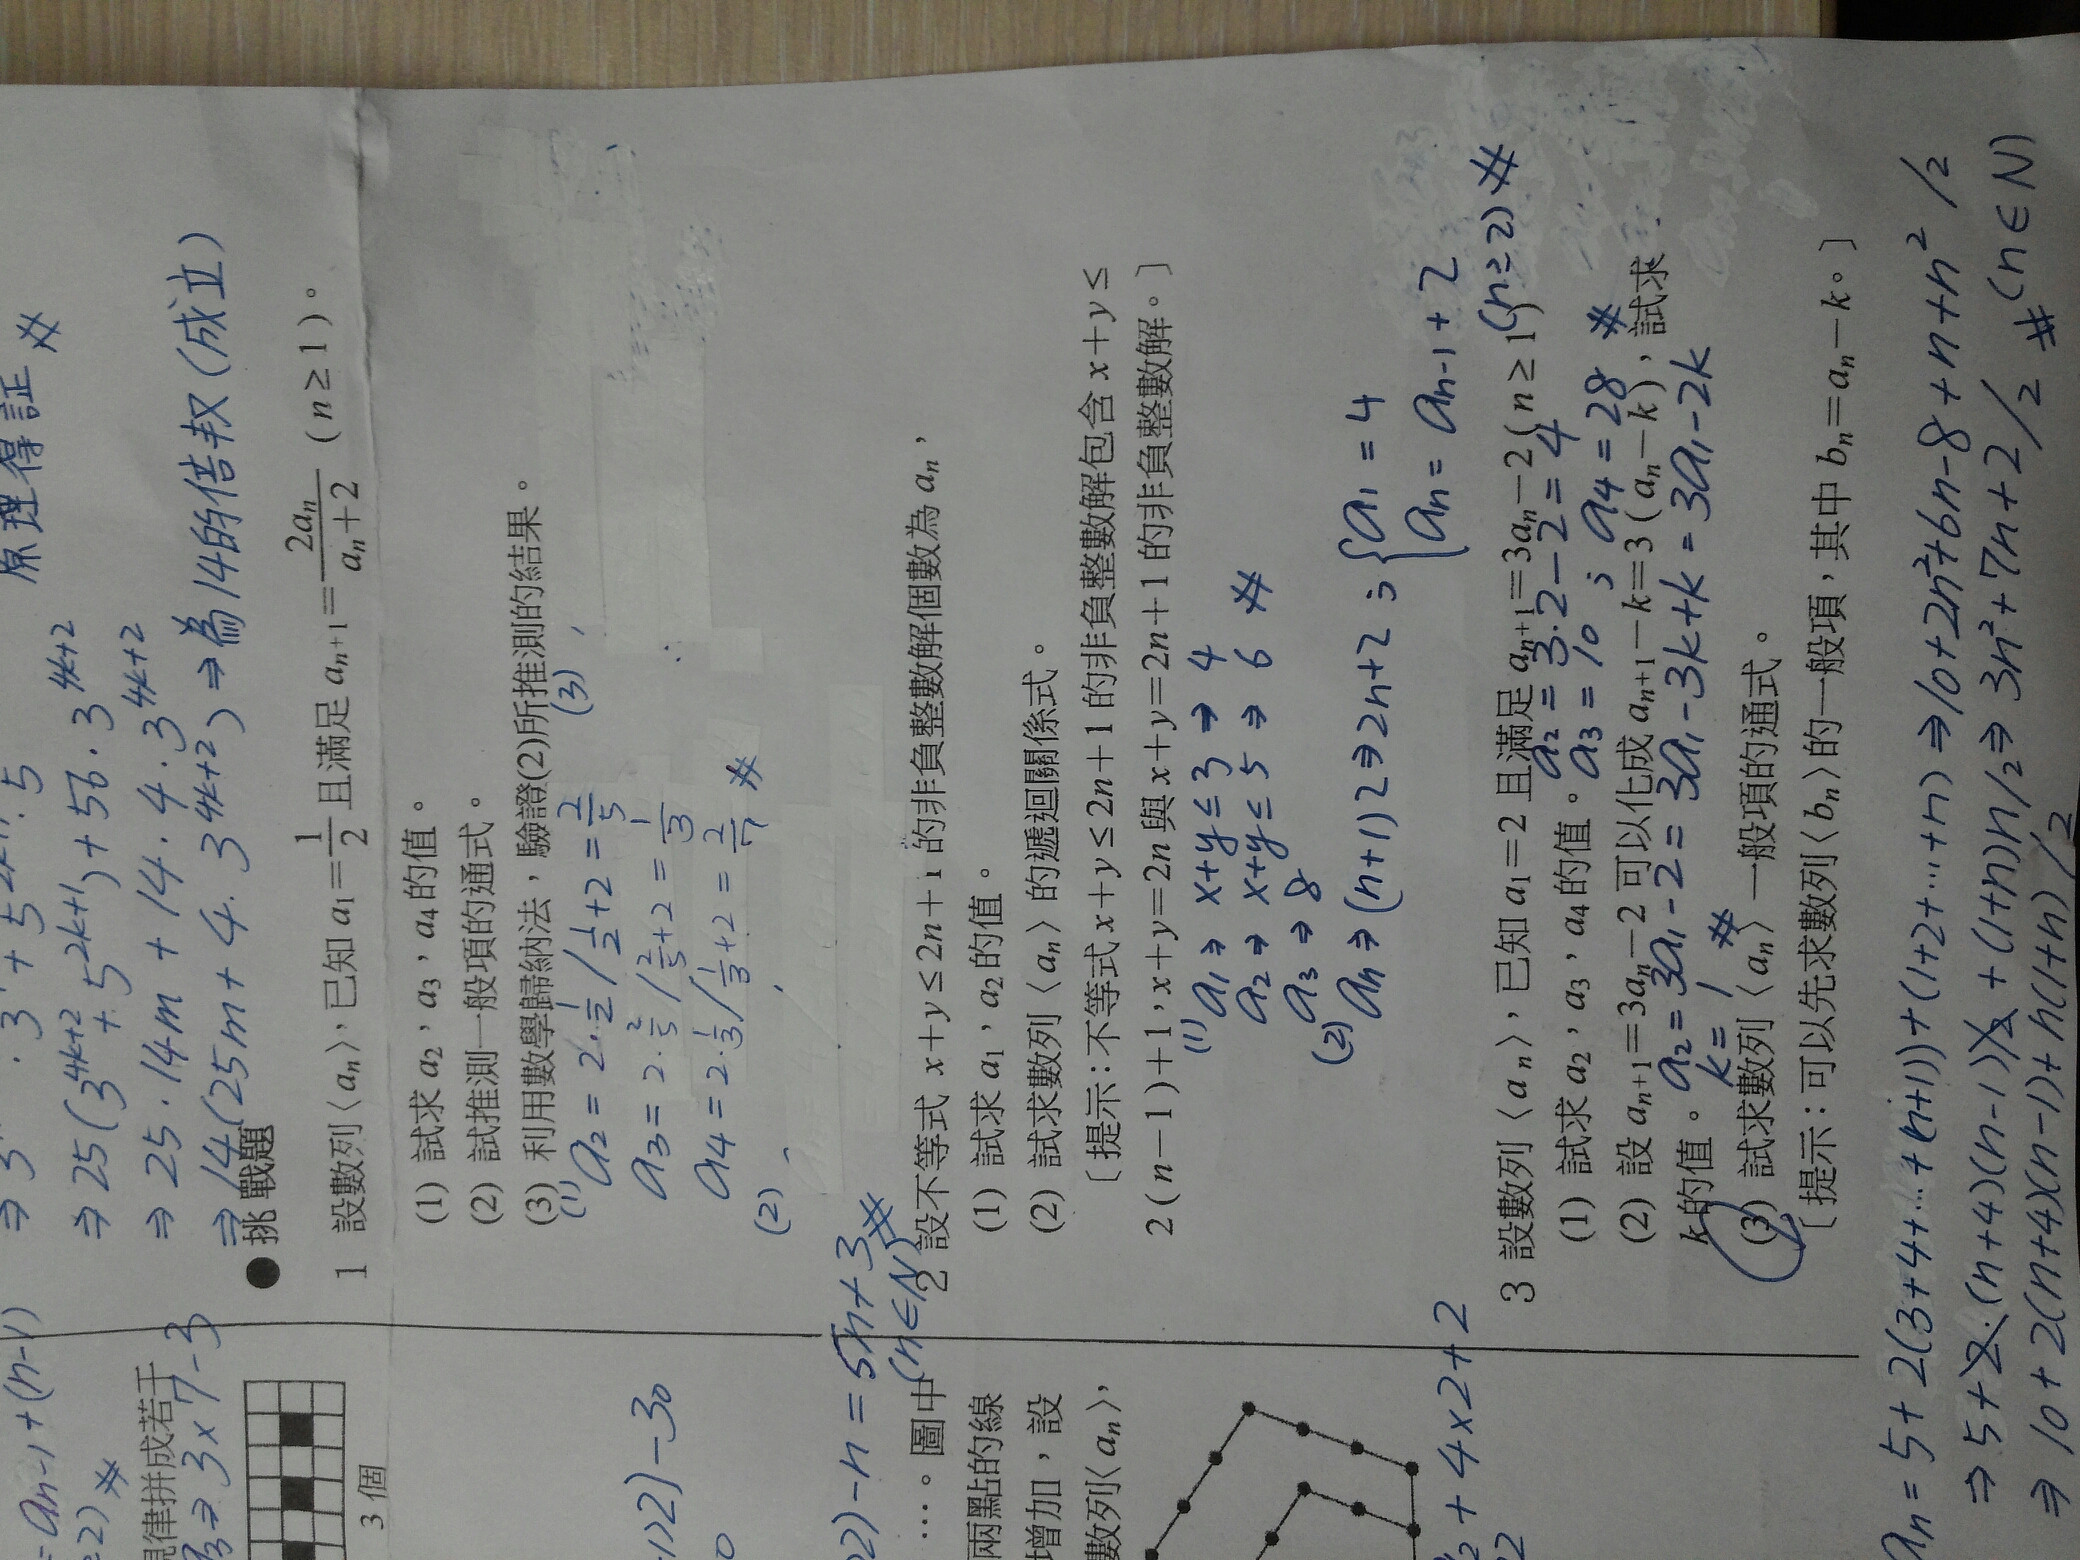 原理得証 #
⇒ 25(3^{4k+2} + 5^{2k+1}) + 56·3^{4k+2}
⇒ 25·14m + 14·4·3^{4k+2}
⇒ 14(25m + 4·3^{4k+2}) ⇒ 為14的倍數(成立)
●挑戰題
1 設數列〈aₙ〉,已知 a₁=1/2 且滿足 aₙ₊₁=2aₙ/(aₙ+2) (n≥1)。
(1) 試求 a₂,a₃,a₄的值。
(2) 試推測一般項的通式。
(3) 利用數學歸納法,驗證(2)所推測的結果。
(1) a₂ = 2·1/2 / 1/2+2 = 2/5 (3)
a₃ = 2·2/5 / 2/5+2 = 1/3
a₄ = 2·1/3 / 1/3+2 = 2/7 #
(2)
2 設不等式 x+y≤2n+1 的非負整數解個數為 aₙ,
(1) 試求 a₁,a₂的值。
(2) 試求數列〈aₙ〉的遞迴關係式。
〔提示:不等式 x+y≤2n+1 的非負整數解包含 x+y≤
2(n−1)+1,x+y=2n 與 x+y=2n+1 的非負整數解。〕
(1) a₁ ⇒ x+y≤3 ⇒ 4
a₂ ⇒ x+y≤5 ⇒ 6 #
a₃ ⇒ 8
(2) aₙ ⇒ (n+1)2 ⇒ 2n+2 ; { a₁ = 4
aₙ = aₙ₋₁ + 2 (n≥2) #
3 設數列〈aₙ〉,已知 a₁=2 且滿足 aₙ₊₁=3aₙ−2(n≥1)
a₂ = 3·2−2 = 4
(1) 試求 a₂,a₃,a₄的值。 a₃ = 10 , a₄ = 28 #
(2) 設 aₙ₊₁=3aₙ−2 可以化成 aₙ₊₁−k=3(aₙ−k),試求
k的值。 a₂ = 3a₁−2 = 3a₁−3k+k = 3a₁−2k
k = 1 #
(3) 試求數列〈aₙ〉一般項的通式。
〔提示:可以先求數列〈bₙ〉的一般項,其中 bₙ=aₙ−k。〕
aₙ = 5+2(3+4+…+(n+1))+(1+2+…+n) ⇒ 10+2n²+6n−8+n+n²/2
⇒ 5+2·(n+4)(n−1)/2+(1+n)n/2 ⇒ 3n²+7n+2/2 # (n∈N)
⇒ 10+2(n+4)(n−1)+n(1+n)/2
= aₙ₋₁+(n−1)
≥2) #
規律拼成若干
⇒ 3×7−3
3個
2)−30
2)−n = 5n+3 #
(n∈N)
……。圖中
兩點的線
增加,設
數列〈aₙ〉,
+4×2+2